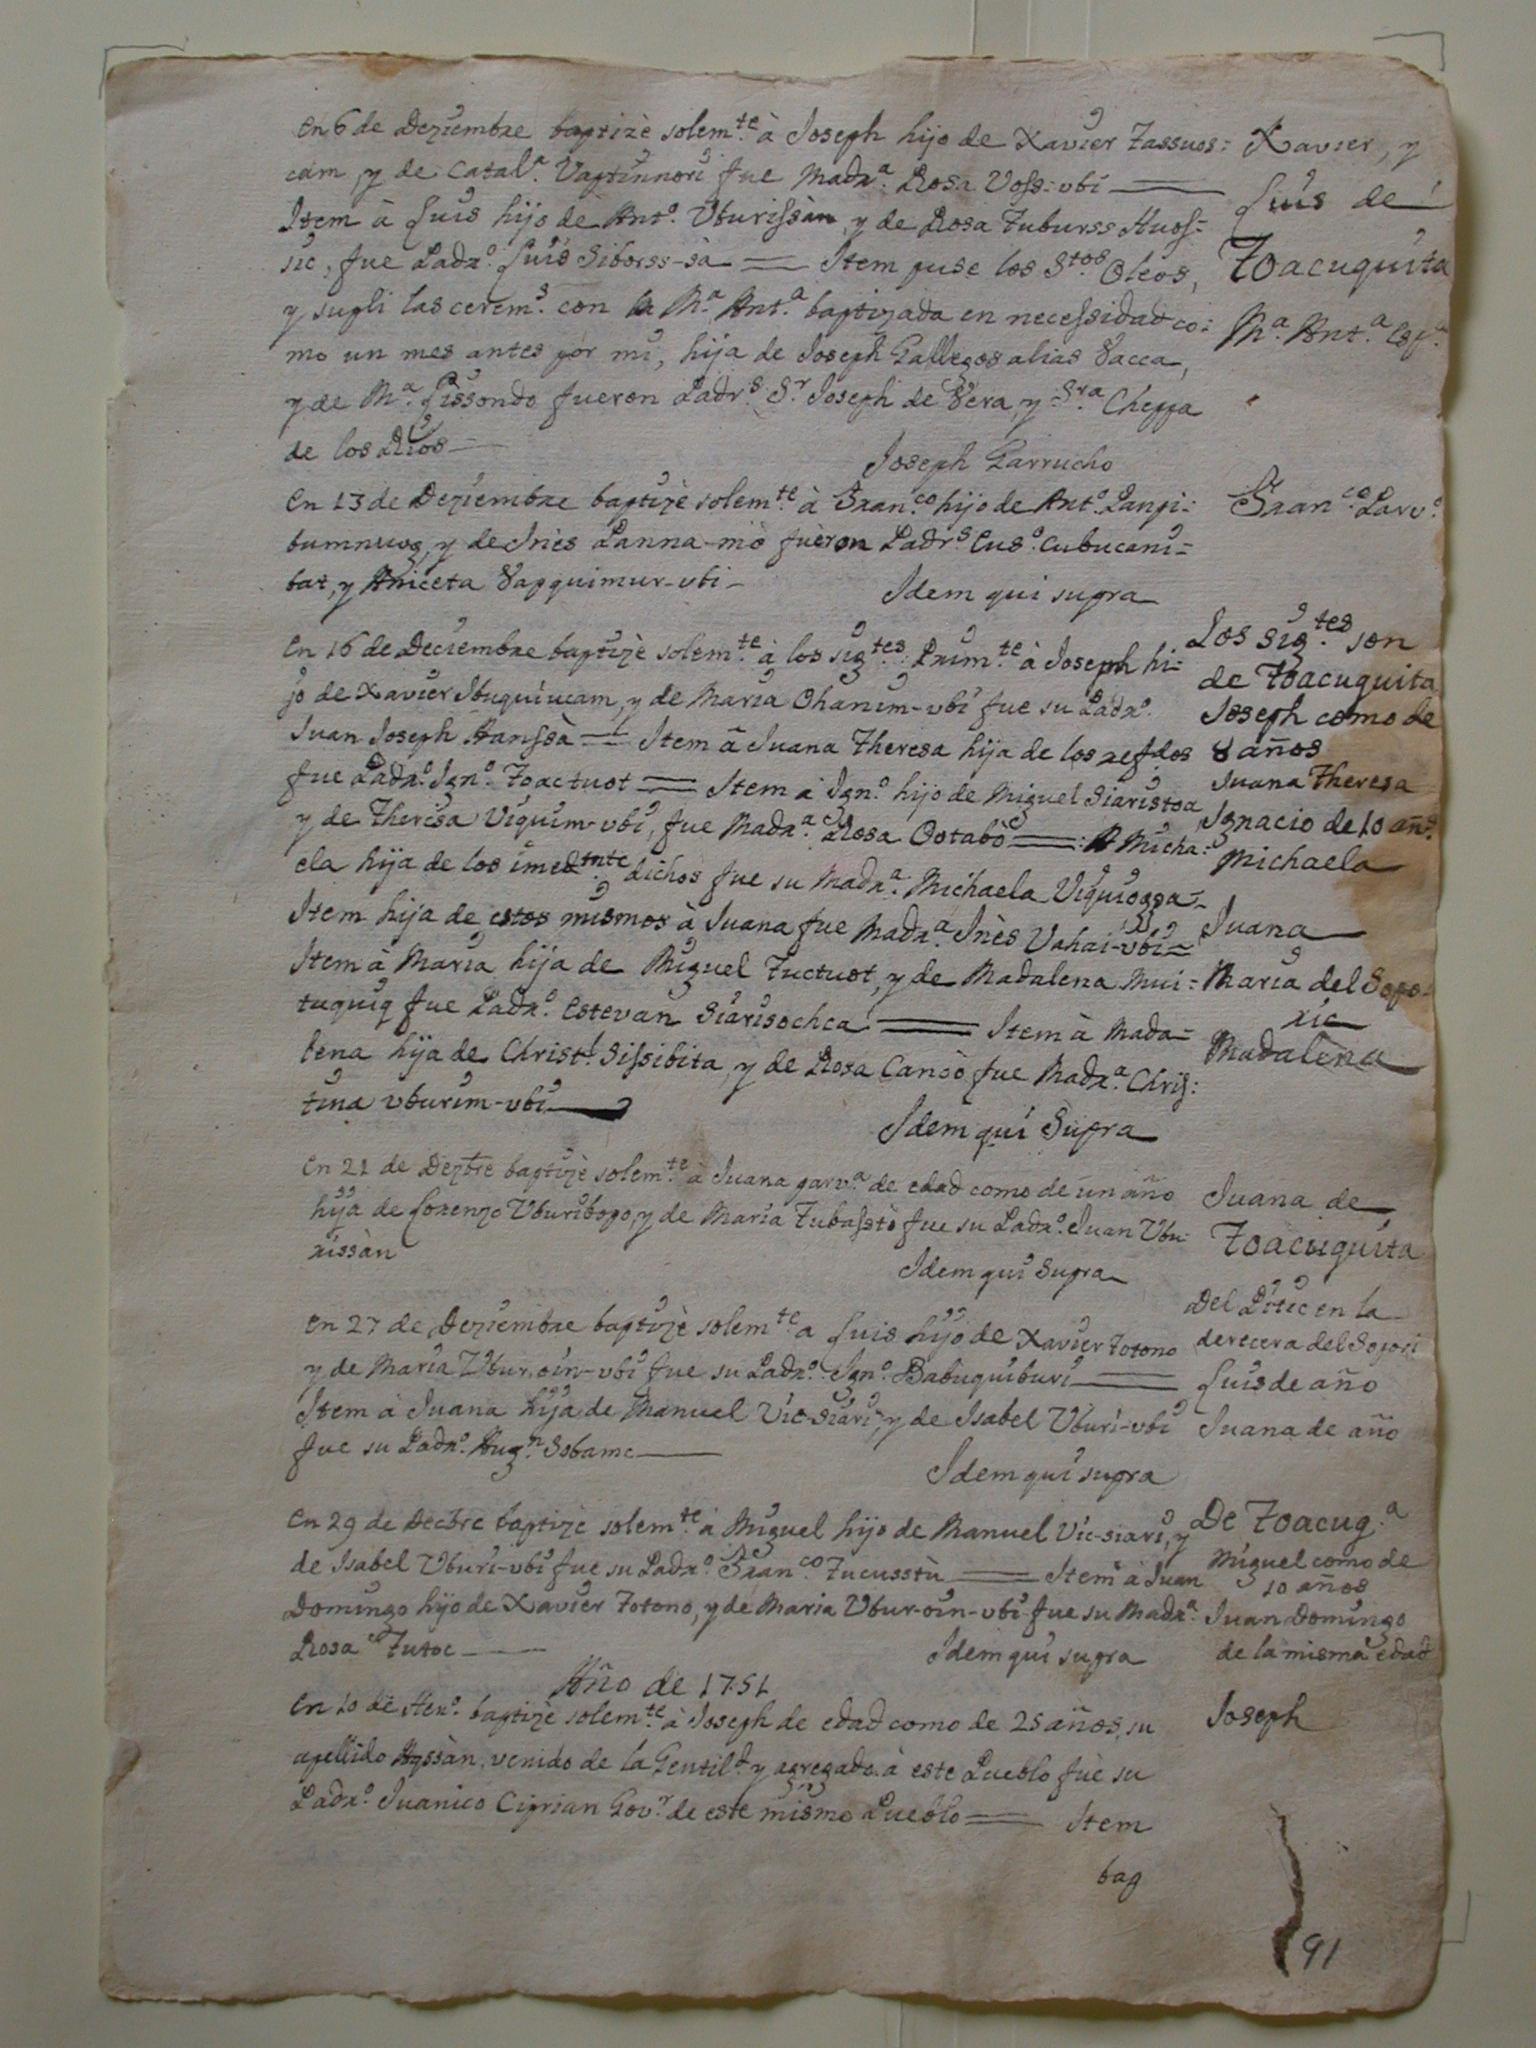 En 6 de Deziembre baptizè solem.te à Joseph hijo de Xavier Tassuos=
cam, y de Catal.a Vaptinnori fue Madr.a Rosa Voss-ubi
Item à Luis hijo de Ant.o Uburissàn, y de Rosa Tuburss Huos=
sic, fue Padr.o Luis Siborss-sà = Item puse los S.tos Oleos,
y supli las cerem.s con la M.a Ant.a baptizada en necessidad co=
mo un mes antes por mi, hija de Joseph Gallegos alias Vacca,
y de M.a Pissondo fueron Padr.s S.r Joseph de Vera, y Sra Cheppa
de los Rios
Joseph Garrucho
Xavier, y
Luis de
Toacuquita
M.a Ant.a Esp.a
En 13 de Deziembre baptizè solem.te à Fran.co hijo de Ant.o Panpi=
bumnuog, y de Inès Panna-mò fueron Padr.s Eus.o Cubucani=
bat, y Aniceta Vapquimur-ubi
Idem qui supra
Fran.co Parv.o
En 16 de Deciembre baptizè solem.te à los sig.tes Prim.te à Joseph hi=
jo de Xavier Ibuquiucam, y de Maria Ohanim-ubi fue su Padr.o
Juan Joseph Hanssà = Item à Juana Theresa hija de los refdos
fue Padr.o Ign.o Toactuot = Item à Ign.o hijo de Miguel Siaristoa
y de Theresa Viquim-ubi, fue Madr.a Rosa Ootabò = A Micha=
ela hija de los imedtnte dichos fue su Madr.a Michaela Viquioppa
Item hija de estos mismos à Juana fue Madr.a Inès Vahai-ubi
Item à Maria hija de Miguel Tuctuot, y de Madalena Mui=
tuquiq fue Padr.o Estevan Siarisochca = Item à Mada=
lena hija de Christ.l Sissibita, y de Rosa Cansò, fue Madr.a Chris=
tina uburim-ubi
Idem qui Supra
Los sig.tes son
de Toacuquita
Joseph como de
8 años
Juana Theresa
Ignacio de 10 añ.s
Michaela
Juana
Maria del Sopo=
ric
Madalena
En 21 de Dezbre baptizè solem.te à Juana parv.a de edad como de un año
hija de Lorenzo Uburibopo, y de Maria Tubasstò fue su Padr.o Juan Ubu=
rissàn
Idem qui Supra
Juana de
Toacuquita
En 27 de Deziembre baptizè solem.te a Luis hijo de Xavier Totono
y de Maria Ubur-oin-ubi fue su Padr.o Ign.o Babuquiburi
Item à Juana hija de Manuel Vic-Siari, y de Isabel Uburi-ubi
fue su Padr.o Aug.n Sobame
Idem qui supra
Del Pitic en la
derecera del Sopori
Luis de año
Juana de año
En 29 de Decbre baptizè solem.te à Miguel hijo de Manuel Vic-siari, y
de Isabel Uburi-ubi fue su Padr.o Fran.co Tucusstù = Item à Juan
Domingo hijo de Xavier Totono, y de Maria Ubur-oin-ubi fue su Madr.a
Rosa Tutoc
Idem qui supra
De Toacuq.a
Miguel como de
10 años
Juan Domingo
de la misma edad
Año de 1751
En 10 de Hen.o baptizè solem.te à Joseph de edad como de 25 años, su
apellido Hyssàn, venido de la Gentil.d y agregado à este Pueblo fuè su
Padr.o Juanico Ciprian Gov.r de este mismo Pueblo = Item
bap
Joseph
91